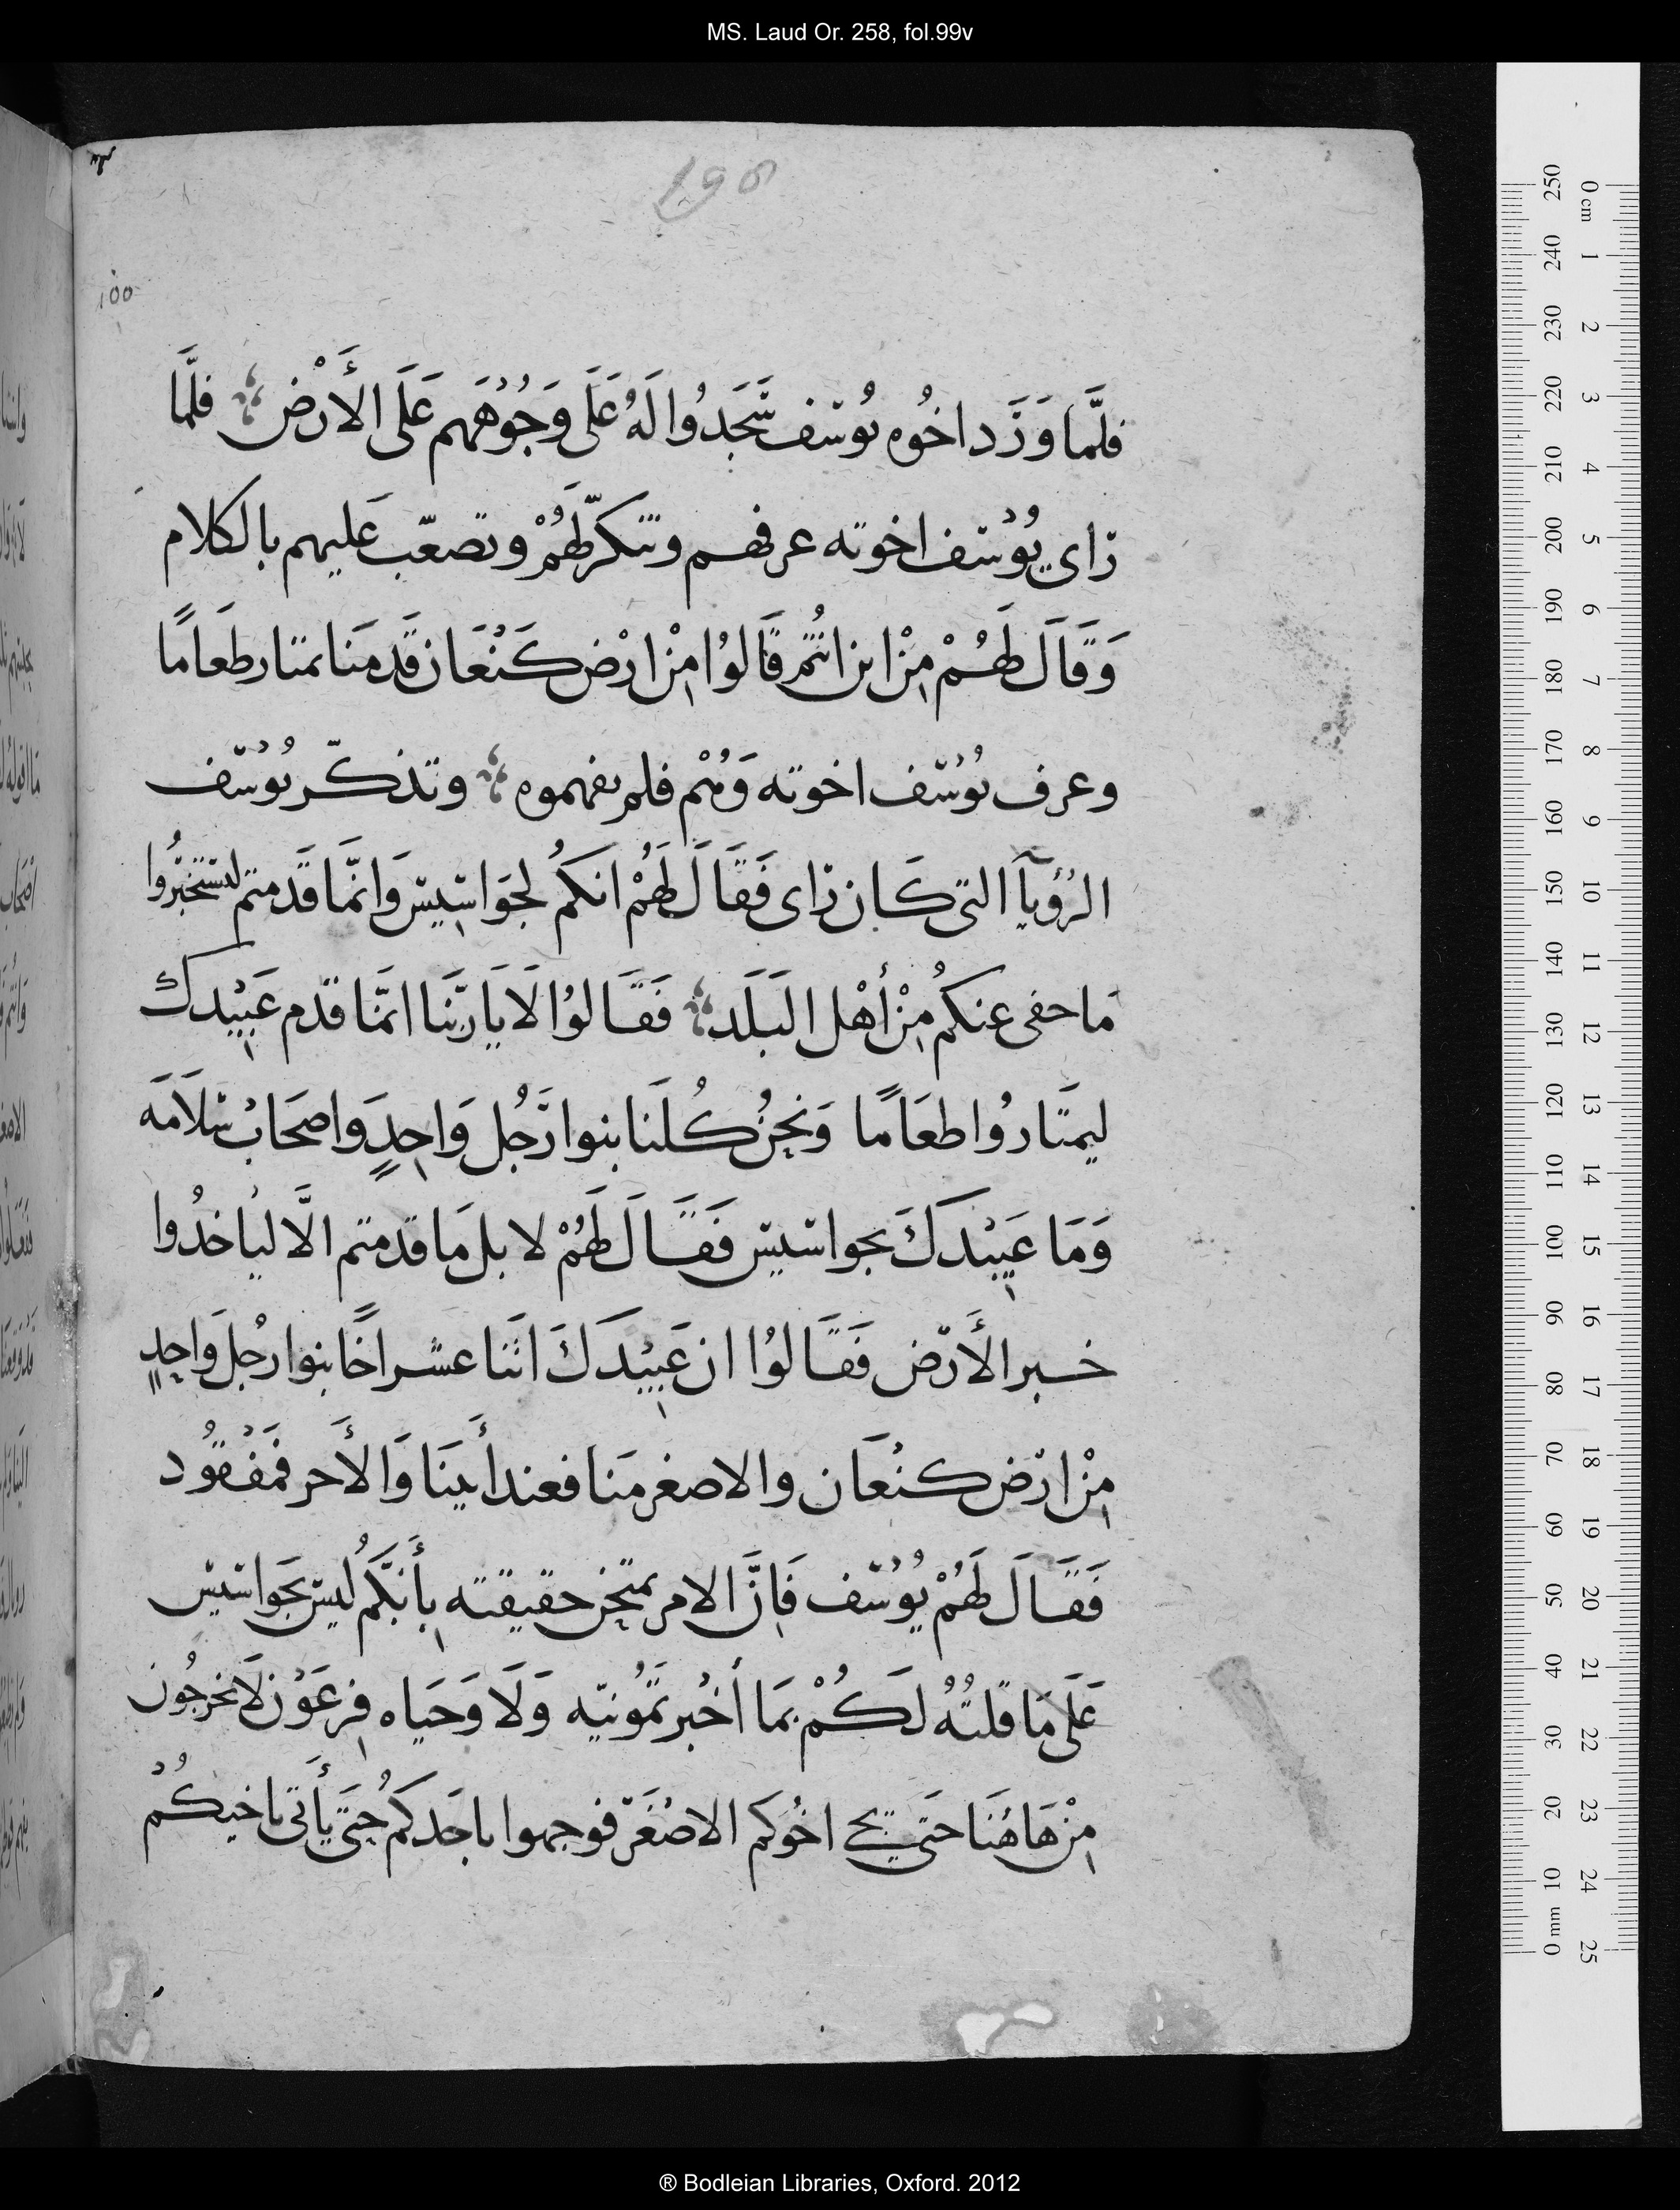 MS. Laud Or. 258, fol.99v
فلَّما وَرَد اخُوه يُوسف سَجَدُوا لَهُ عَلَى وَجُوُههم عَلَى الأَرْض فلَّما
راى يُوُسف اخوته عرفهم وتنكرّ لَهُمْ وتصعّب عَليهم بالكلام
وَقَالَ لَهُمْ مِنْ اين انتُم قَالوُا مِنْ ارْض كَنْعَان قَدمَنا نمتار طَعَامًا
وعرف يُوُسف اخوته وَهُمْ فلم يفهموه وتذكّر يُوُسف
الرُؤيآ التى كَان راى فَقَالَ لَهُمْ انكمُ لجوَاسِيس وَانَّما قَدمتم لتستخبرُوا
مَا خفى عنكمُ مِنْ أهْل البَلَد فَقَالوُا لَا يَا ربَّنَا انمَّا قدم عَبِيْدك
ليمتَارُوا طعَامًا وَنحِنُ كُلَنا بنوا رَجُل وَاحِدٍ وَاصحَابُ سَلَامَه
وَمَا عَبِيْدكَ بجواسيس فَقَالَ لَهُمْ لا بل مَا قدمتم الَّا ليَاخدُوا
خبر الأَرض فَقَالوُا ان عَبِيْدَكَ اثنا عشر اخًا بنوا رجُل وَاحِدٍ
مِنْ ارض كنْعَان والاصغر منَا فعند أَبينَا وَالأَخر فمَفْقوُد
فَقَالَ لهُمْ يوُسف فَاِنَّ الامر يمتحن حقيقته بِأَنكَّمُ ليس بجَواسيس
عَلَى مَا قلتُهُ لَكُمْ بمَا أخْبرتمُونيّه وَلَا وَحَياه فِرعَوْن لَا تخرجُون
مِنْ هَاهُنَا حتَى يجى اخُوكم الاصْغَر فوجهوا باحَدكمُ حِتَى يأَتى باخيكُمْ
® Bodleian Libraries, Oxford. 2012